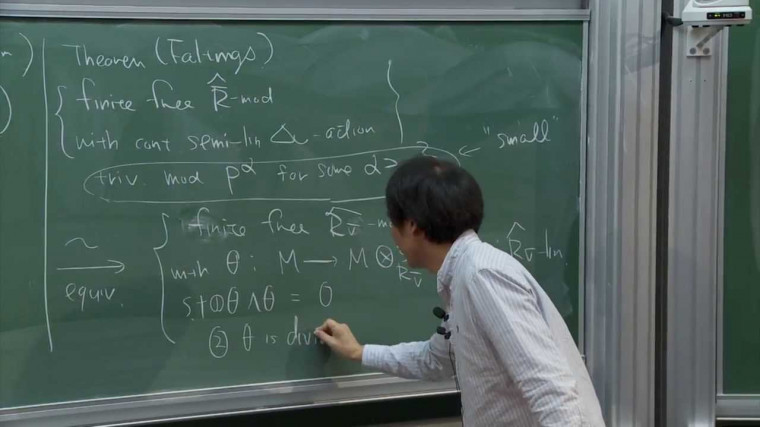 Theorem (Faltings)
finite free R̂̄-mod
with cont semi-lin Δ-action
triv. mod p^α for some α > "small"
~ equiv.
finite free R̂_V̄-mod
with θ : M → M ⊗_R̂_V̄ R̂_V̄-lin.
s.t ① θ∧θ = 0
② θ is div